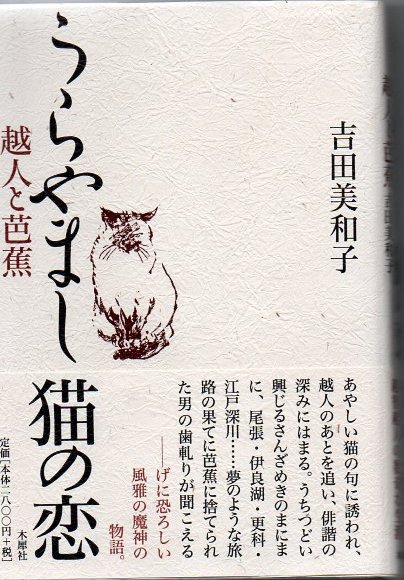 吉田美和子
うらやまし猫の恋
越人と芭蕉
あやしい猫の句に誘われ、
越人のあとを追い、俳諧の
深みにはまる。うちつどい
興じるさんざめきのまにま
に、尾張・伊良湖・更科・
江戸深川……夢のような旅
路の果てに芭蕉に捨てられ
た男の歯軋りが聞こえる
――げに恐ろしい
風雅の魔神の
物語。
木犀社
定価[本体二八〇〇円+税]
越人と芭蕉
吉田美和子